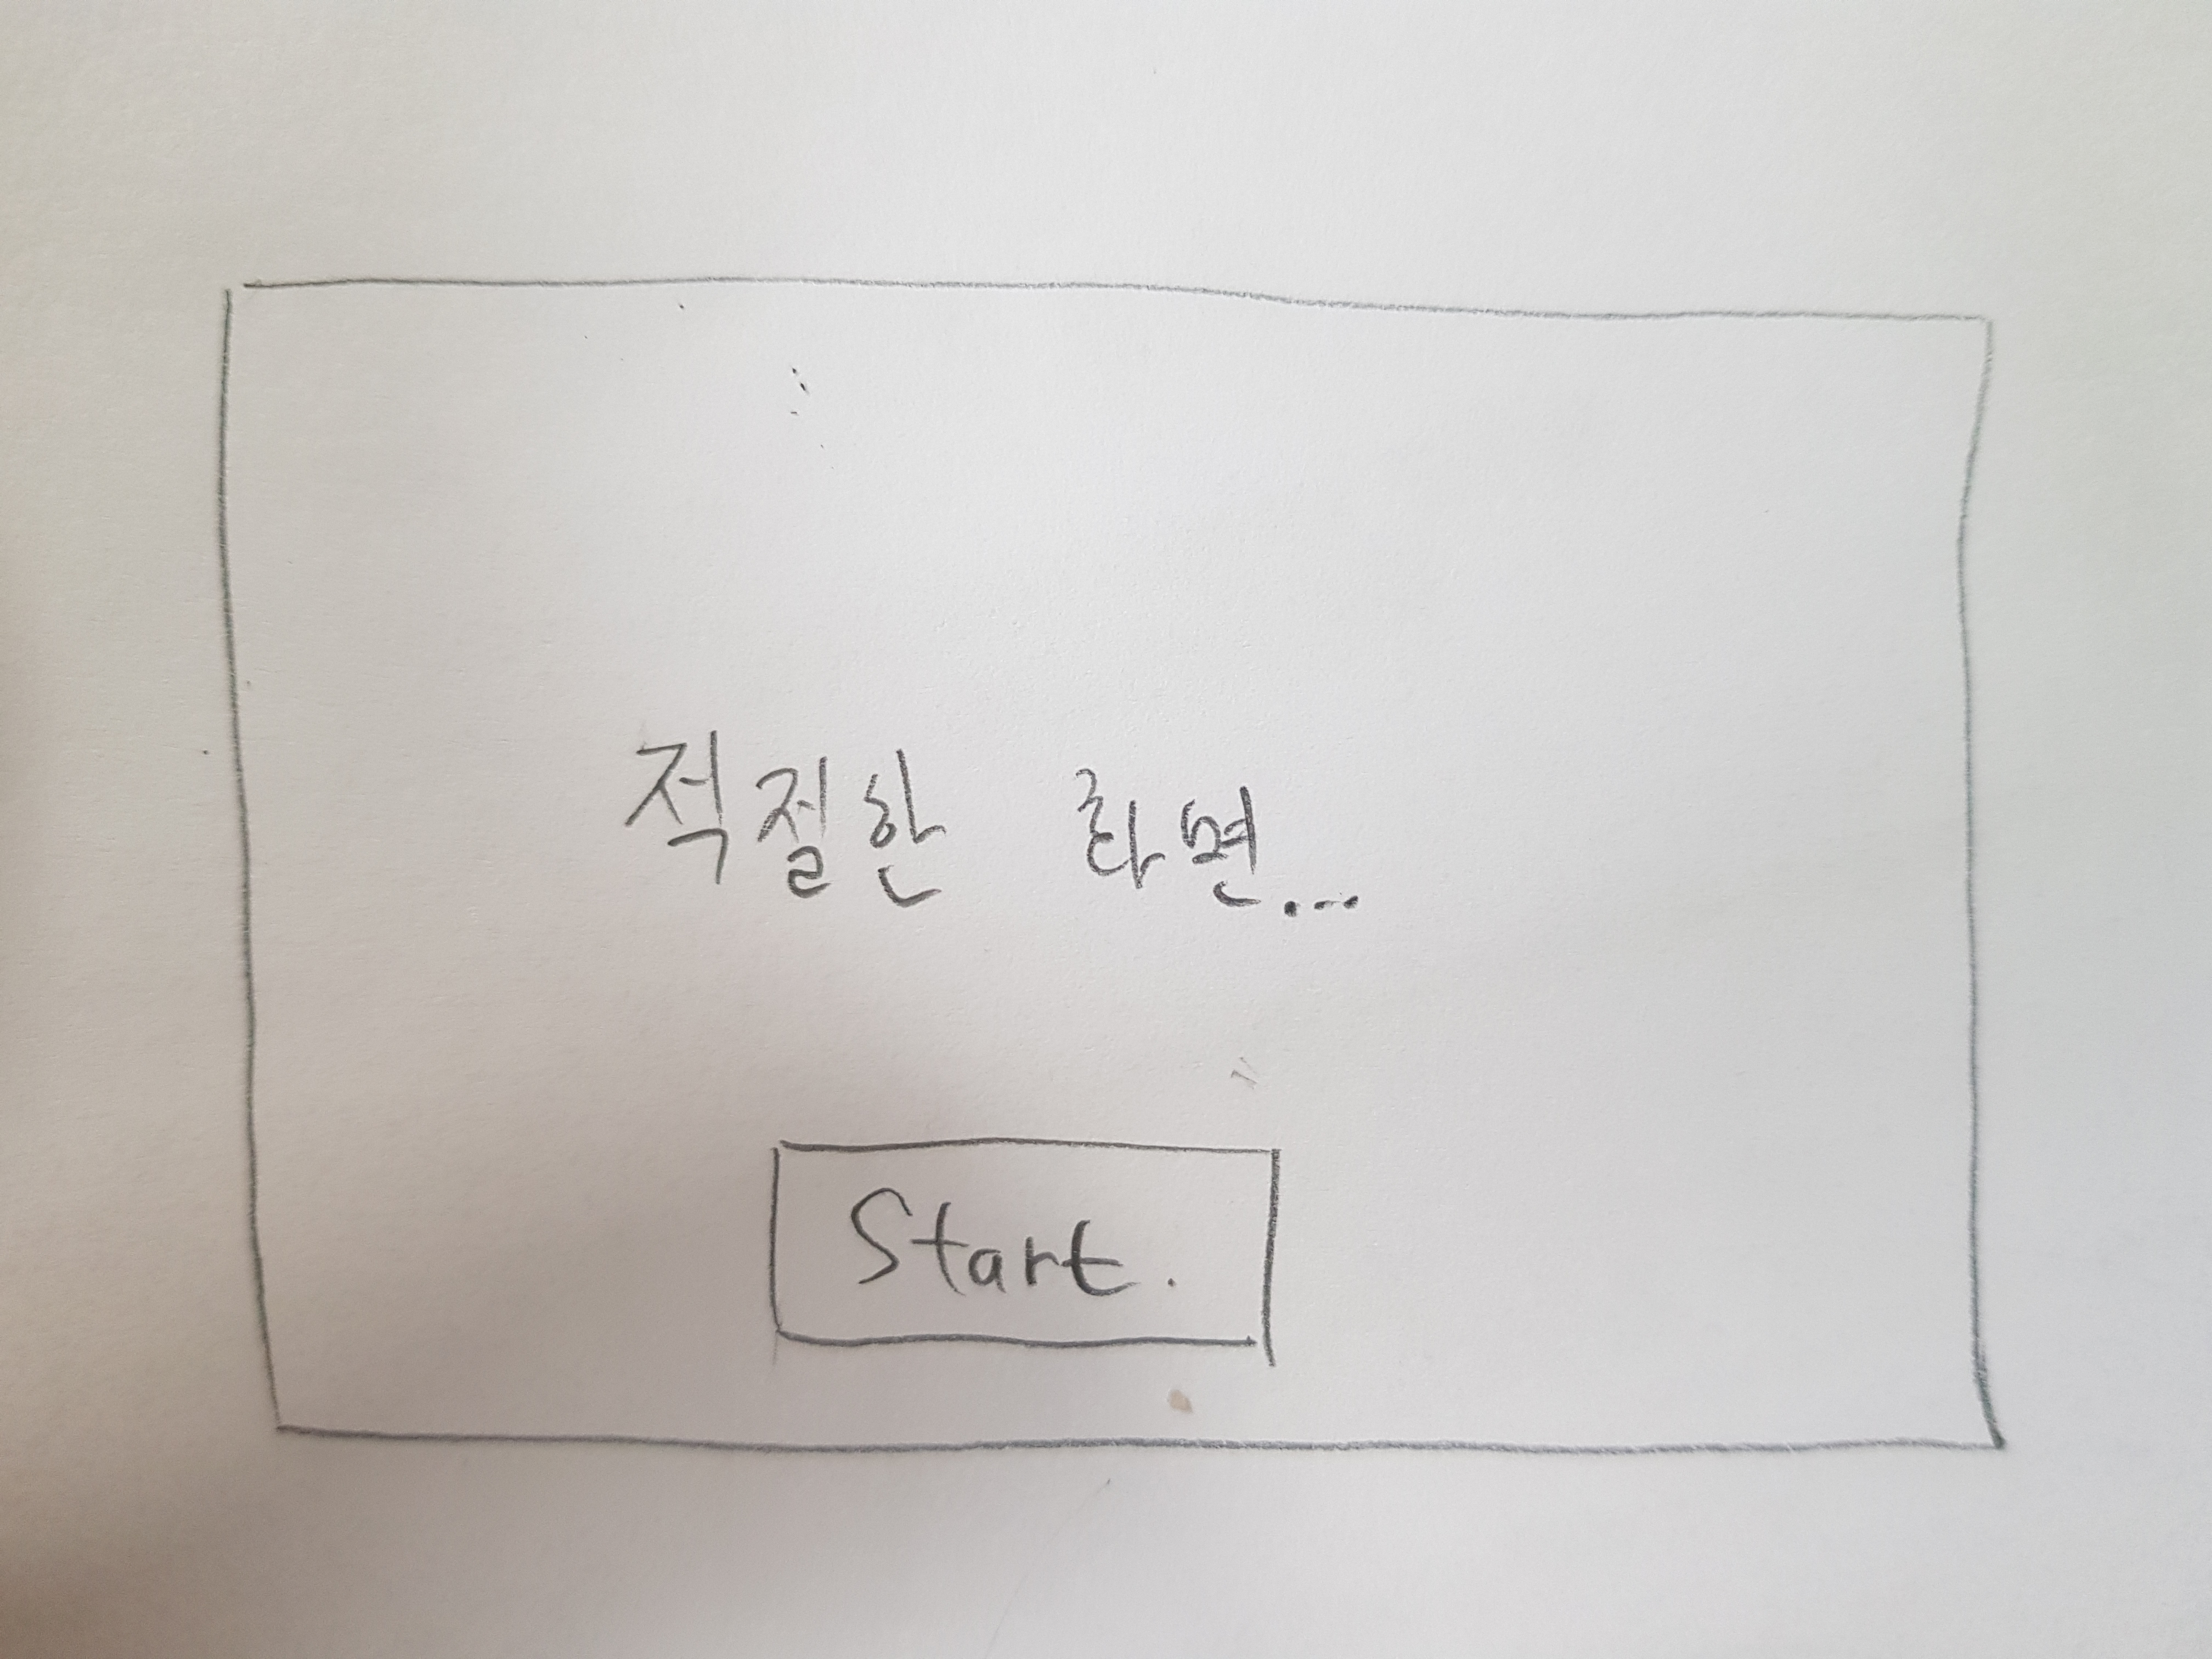 적절한 화면...
Start.